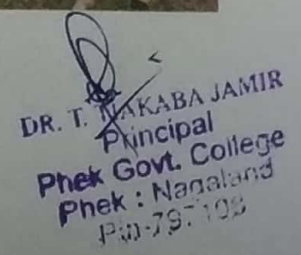 DR. T. WAKABA JAMIR
Principal
Phek Govt. College
Phek : Nagaland
Pin-797108